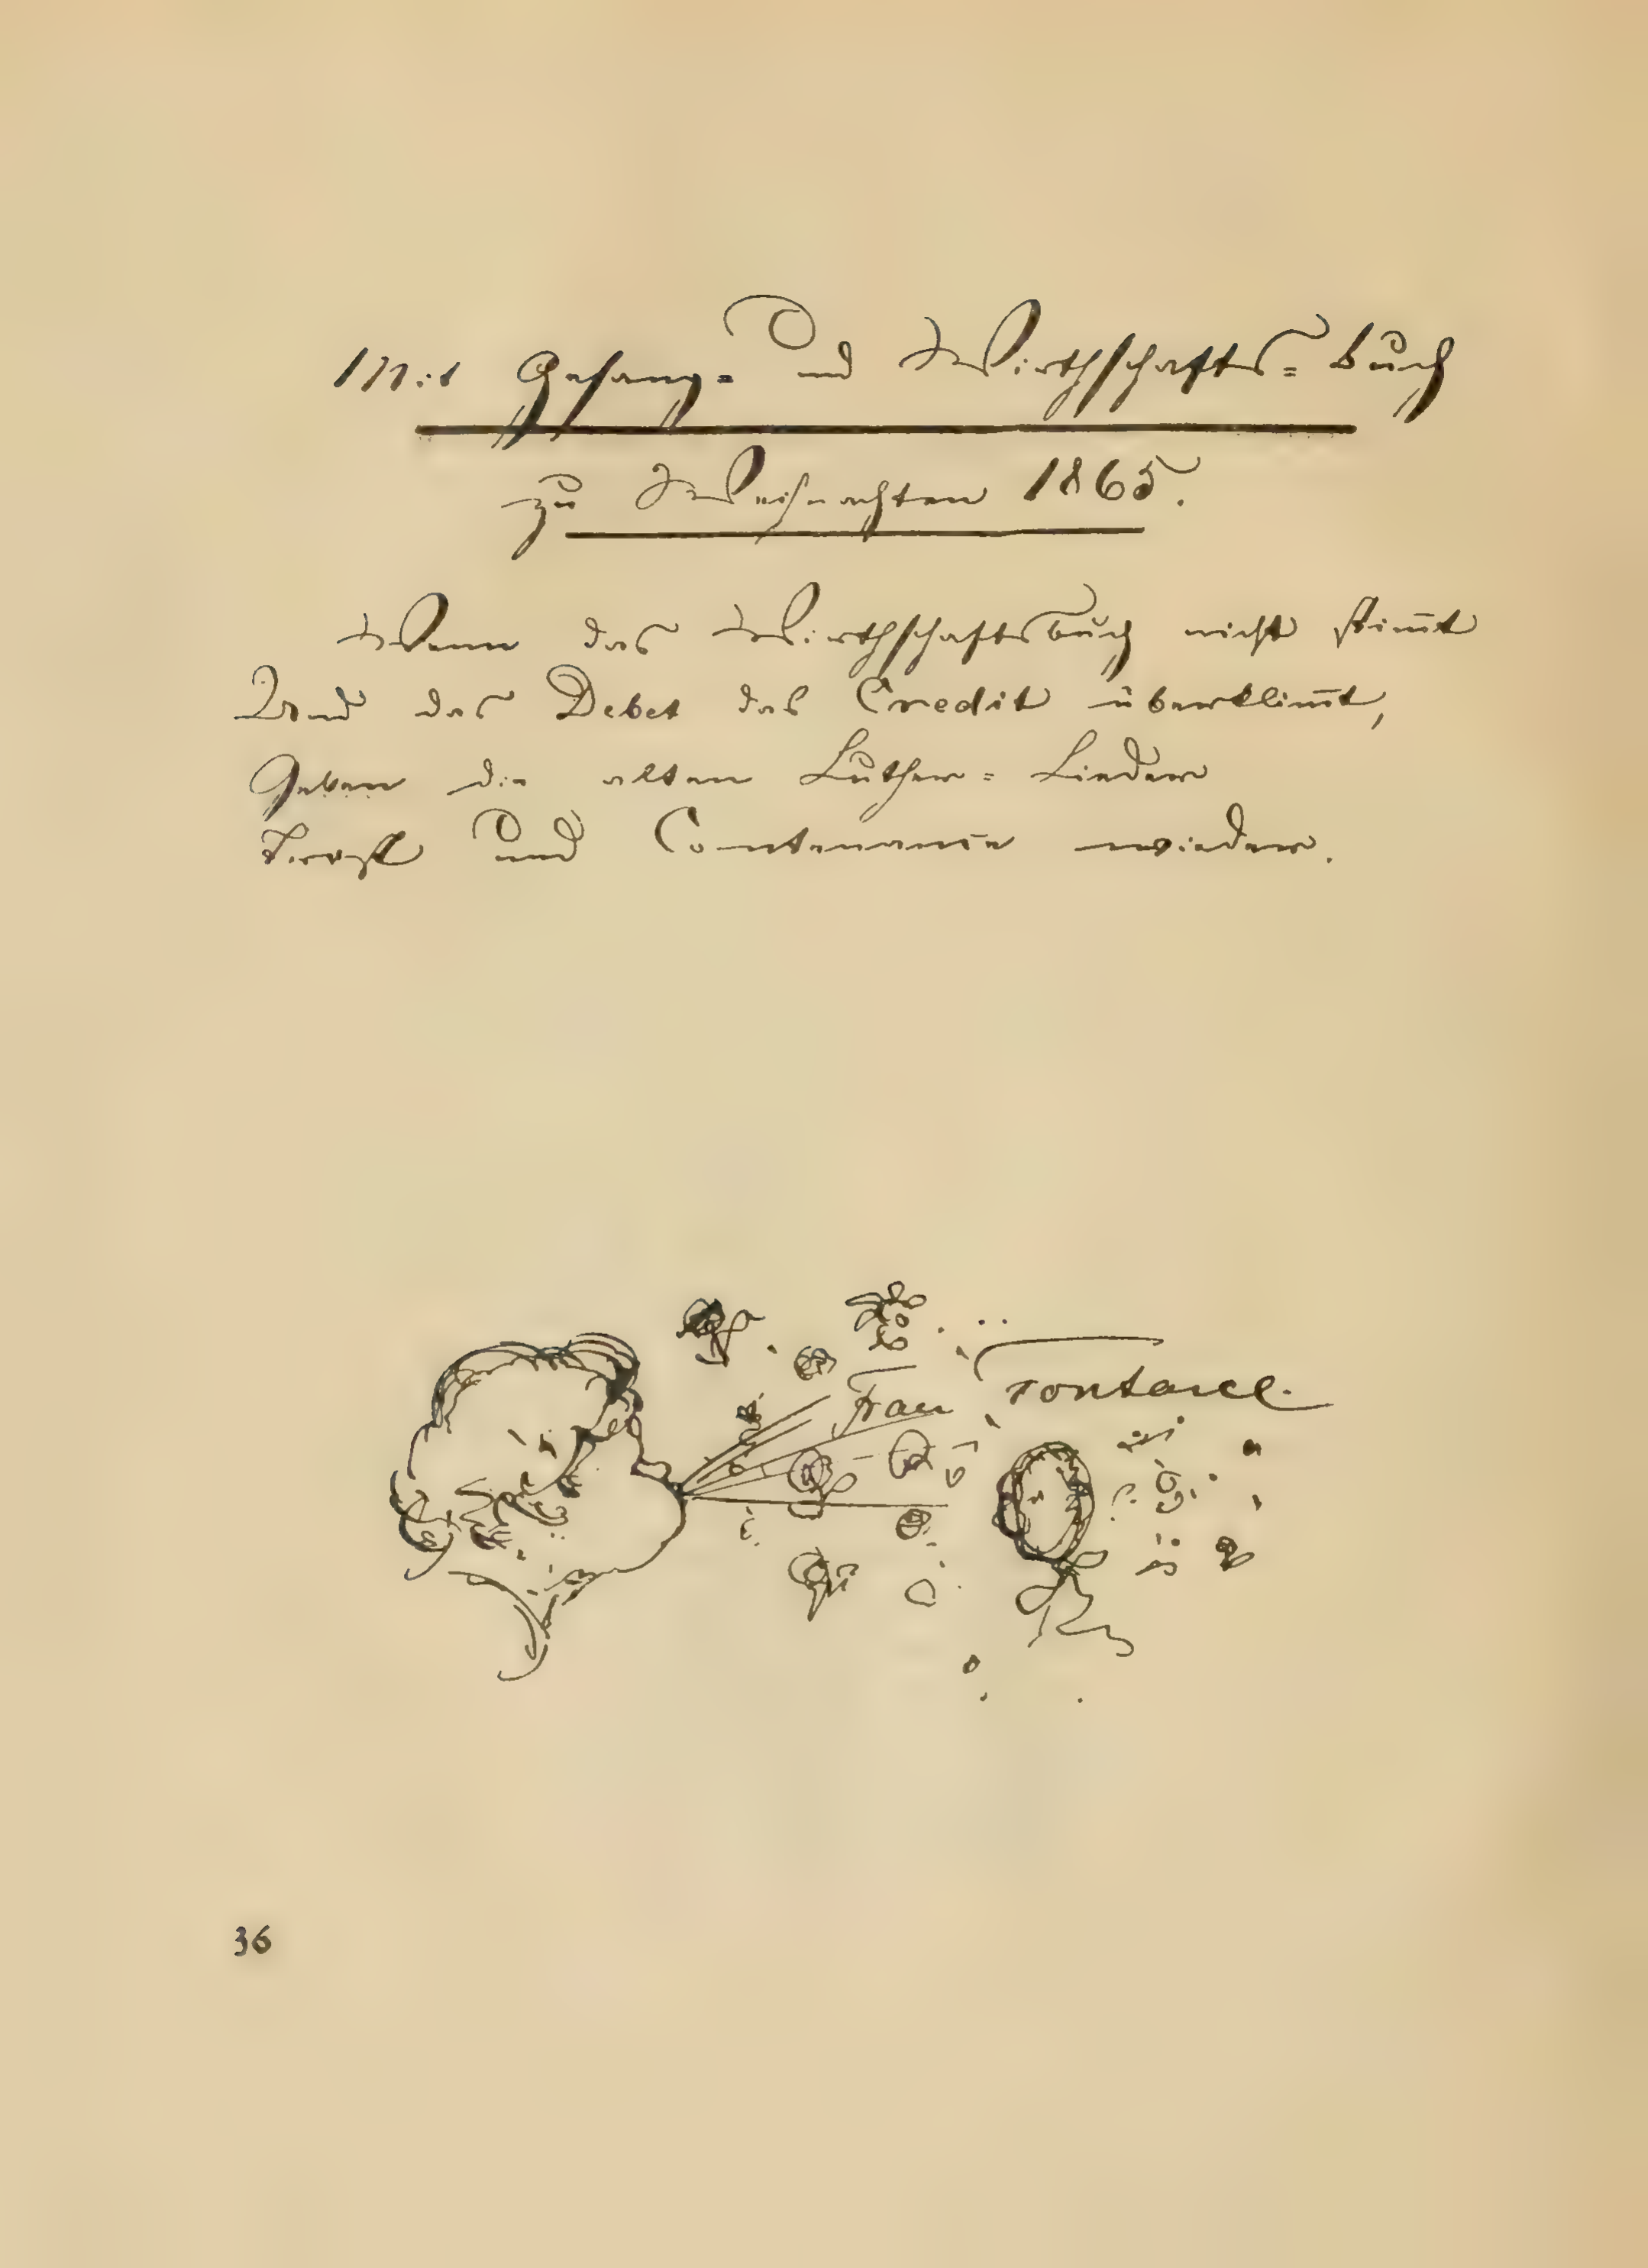 Mit Gesang= und Wirthschafts=buch
zu Weihnachten 1865.
Wenn das Wirthschaftsbuch nicht stim̅t
Und das Debet das Credit überklim̅t,
Geben die alten Luther=Lieder
Trost und Contenance wieder.
Frau Fontane.
36